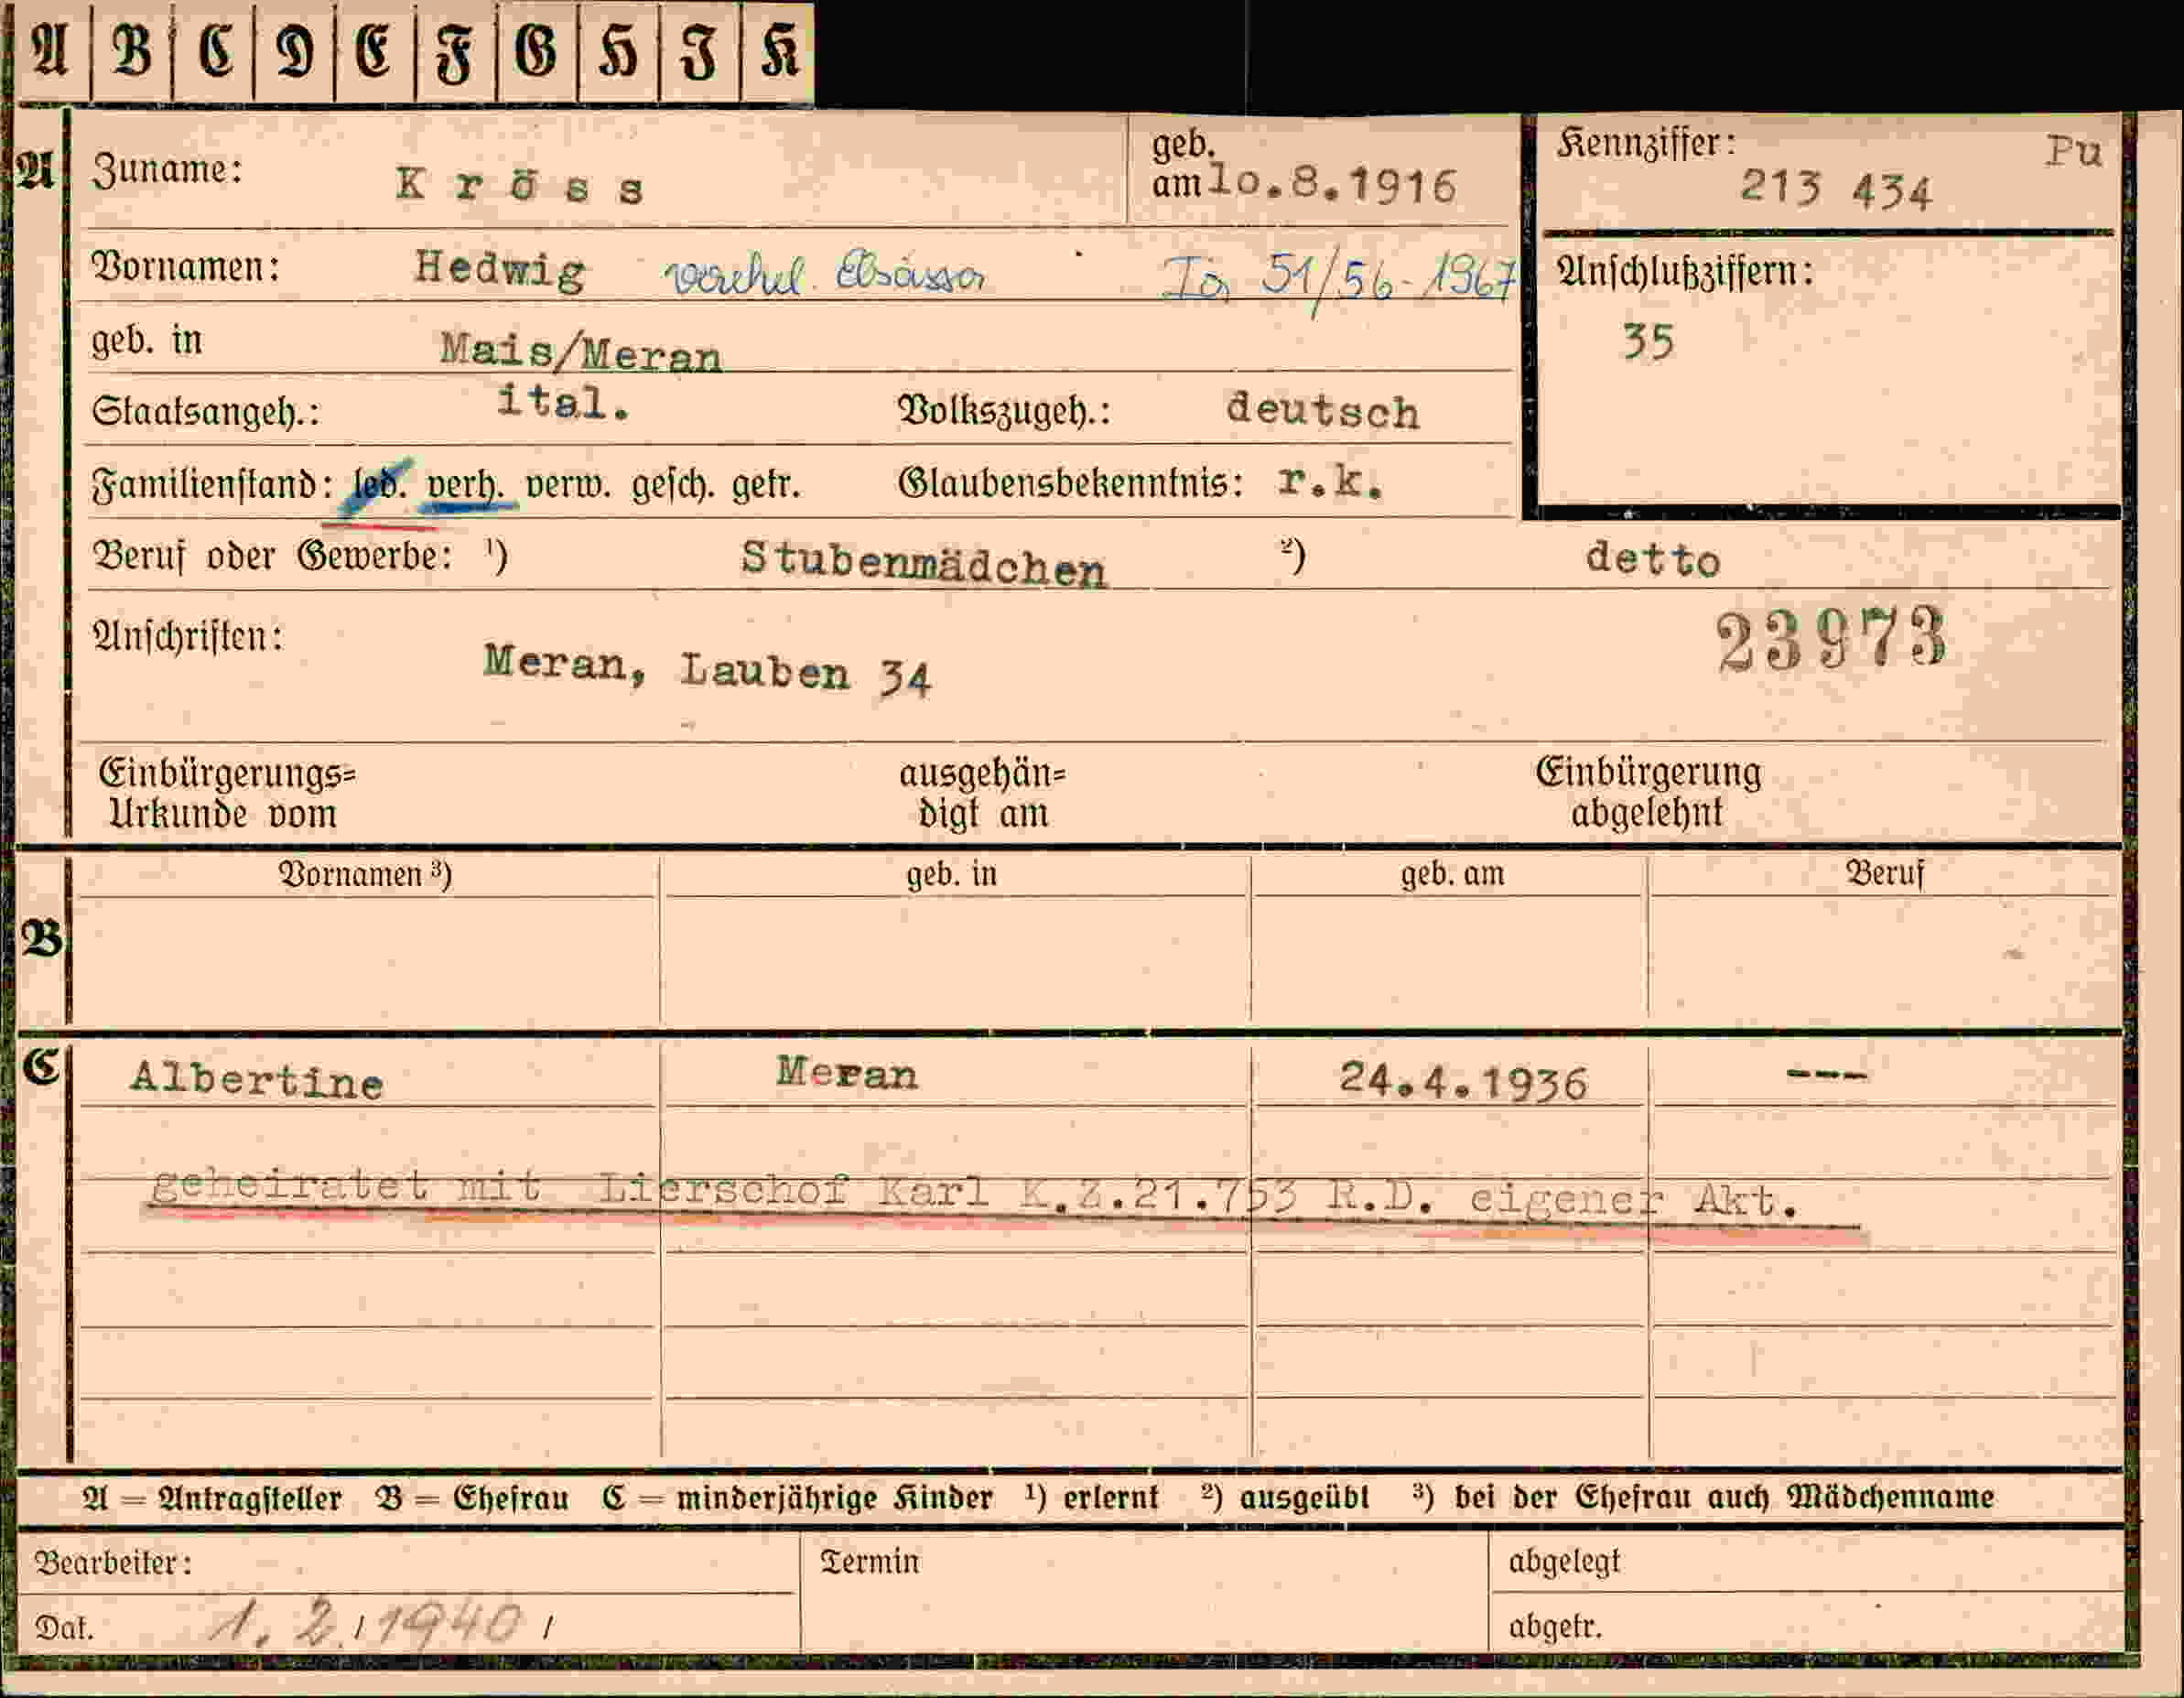 A B C D E F G H J K
A Zuname: Kröss geb. am 1o.8.1916 Kennziffer: 213 434 Pu
Vornamen: Hedwig Ia 51/56-1967 Anschlußziffern:
geb. in Mais/Meran 35
Staatsangeh.: ital. Volkszugeh.: deutsch
Familienstand: led. verh. verw. gesch. getr. Glaubensbekenntnis: r.k.
Beruf oder Gewerbe: ¹) Stubenmädchen ²) detto
Anschriften: Meran, Lauben 34 23973
Einbürgerungs= ausgehän= Einbürgerung
Urkunde vom digt am abgelehnt
Vornamen ³) geb. in geb. am Beruf
B
C Albertine Meran 24.4.1936 ---
geheiratet mit Lierschof Karl K.Z.21.753 R.D. eigener Akt.
A = Antragsteller B = Ehefrau C = minderjährige Kinder ¹) erlernt ²) ausgeübt ³) bei der Ehefrau auch Mädchenname
Bearbeiter: Termin abgelegt
Dat. 1. 2./1940/ abgetr.